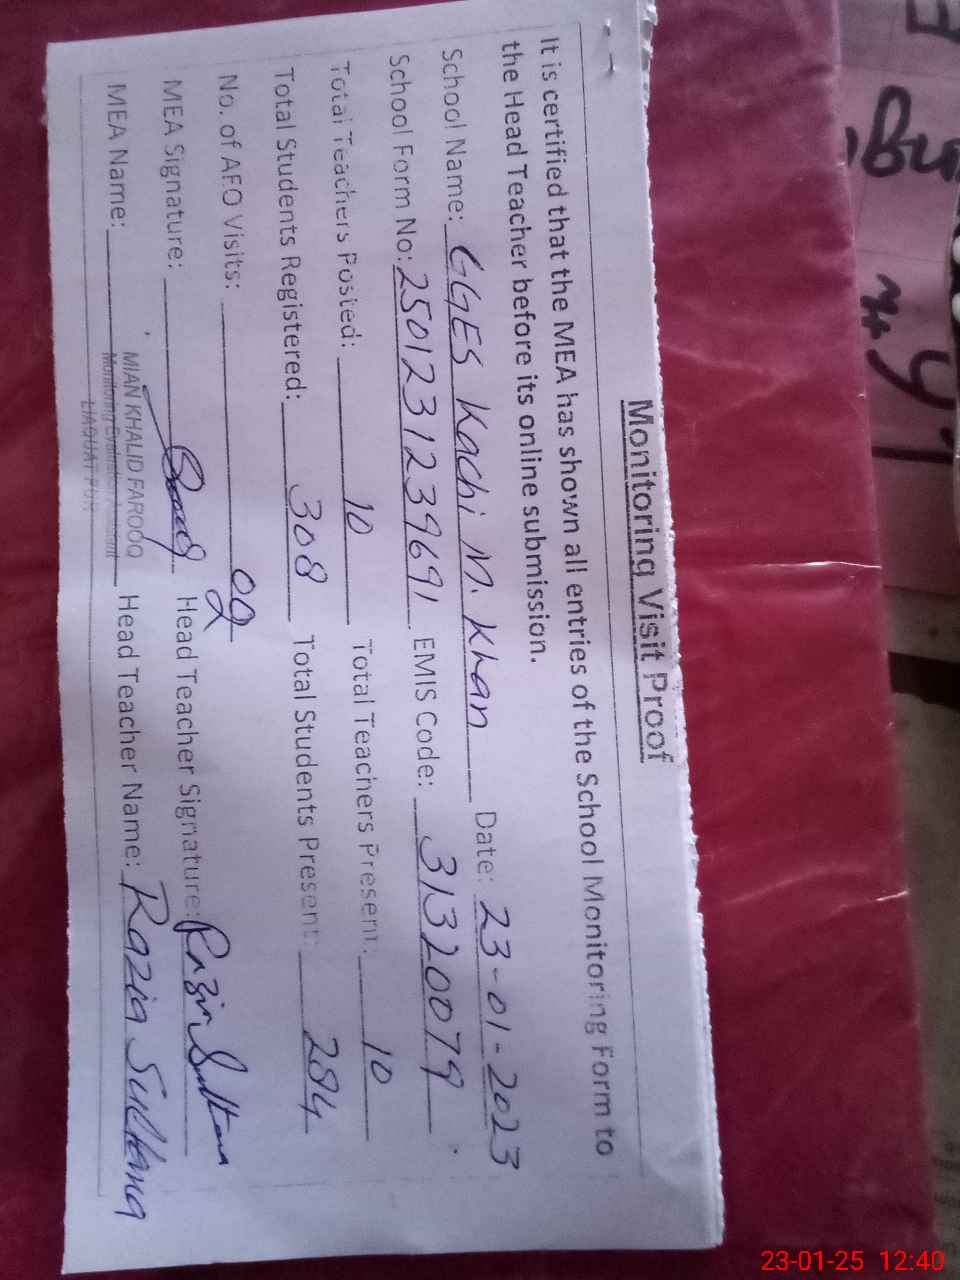 Monitoring Visit Proof
It is certified that the MEA has shown all entries of the School Monitoring Form to
the Head Teacher before its online submission.
School Name: GGES Kachi M. Khan Date: 23-01-2023
School Form No: 2501231239691 EMIS Code: 31320079
Total Teachers Posted: 10 Total Teachers Present: 10
Total Students Registered: 308 Total Students Present: 284
No. of AEO Visits: 02
MEA Signature: Head Teacher Signature: Razia Sultana
MEA Name: MIAN KHALID FAROOQ Head Teacher Name: Razia Sultana
Monitoring Evaluation Assistant
LIAQUAT PUR
23-01-25 12:40